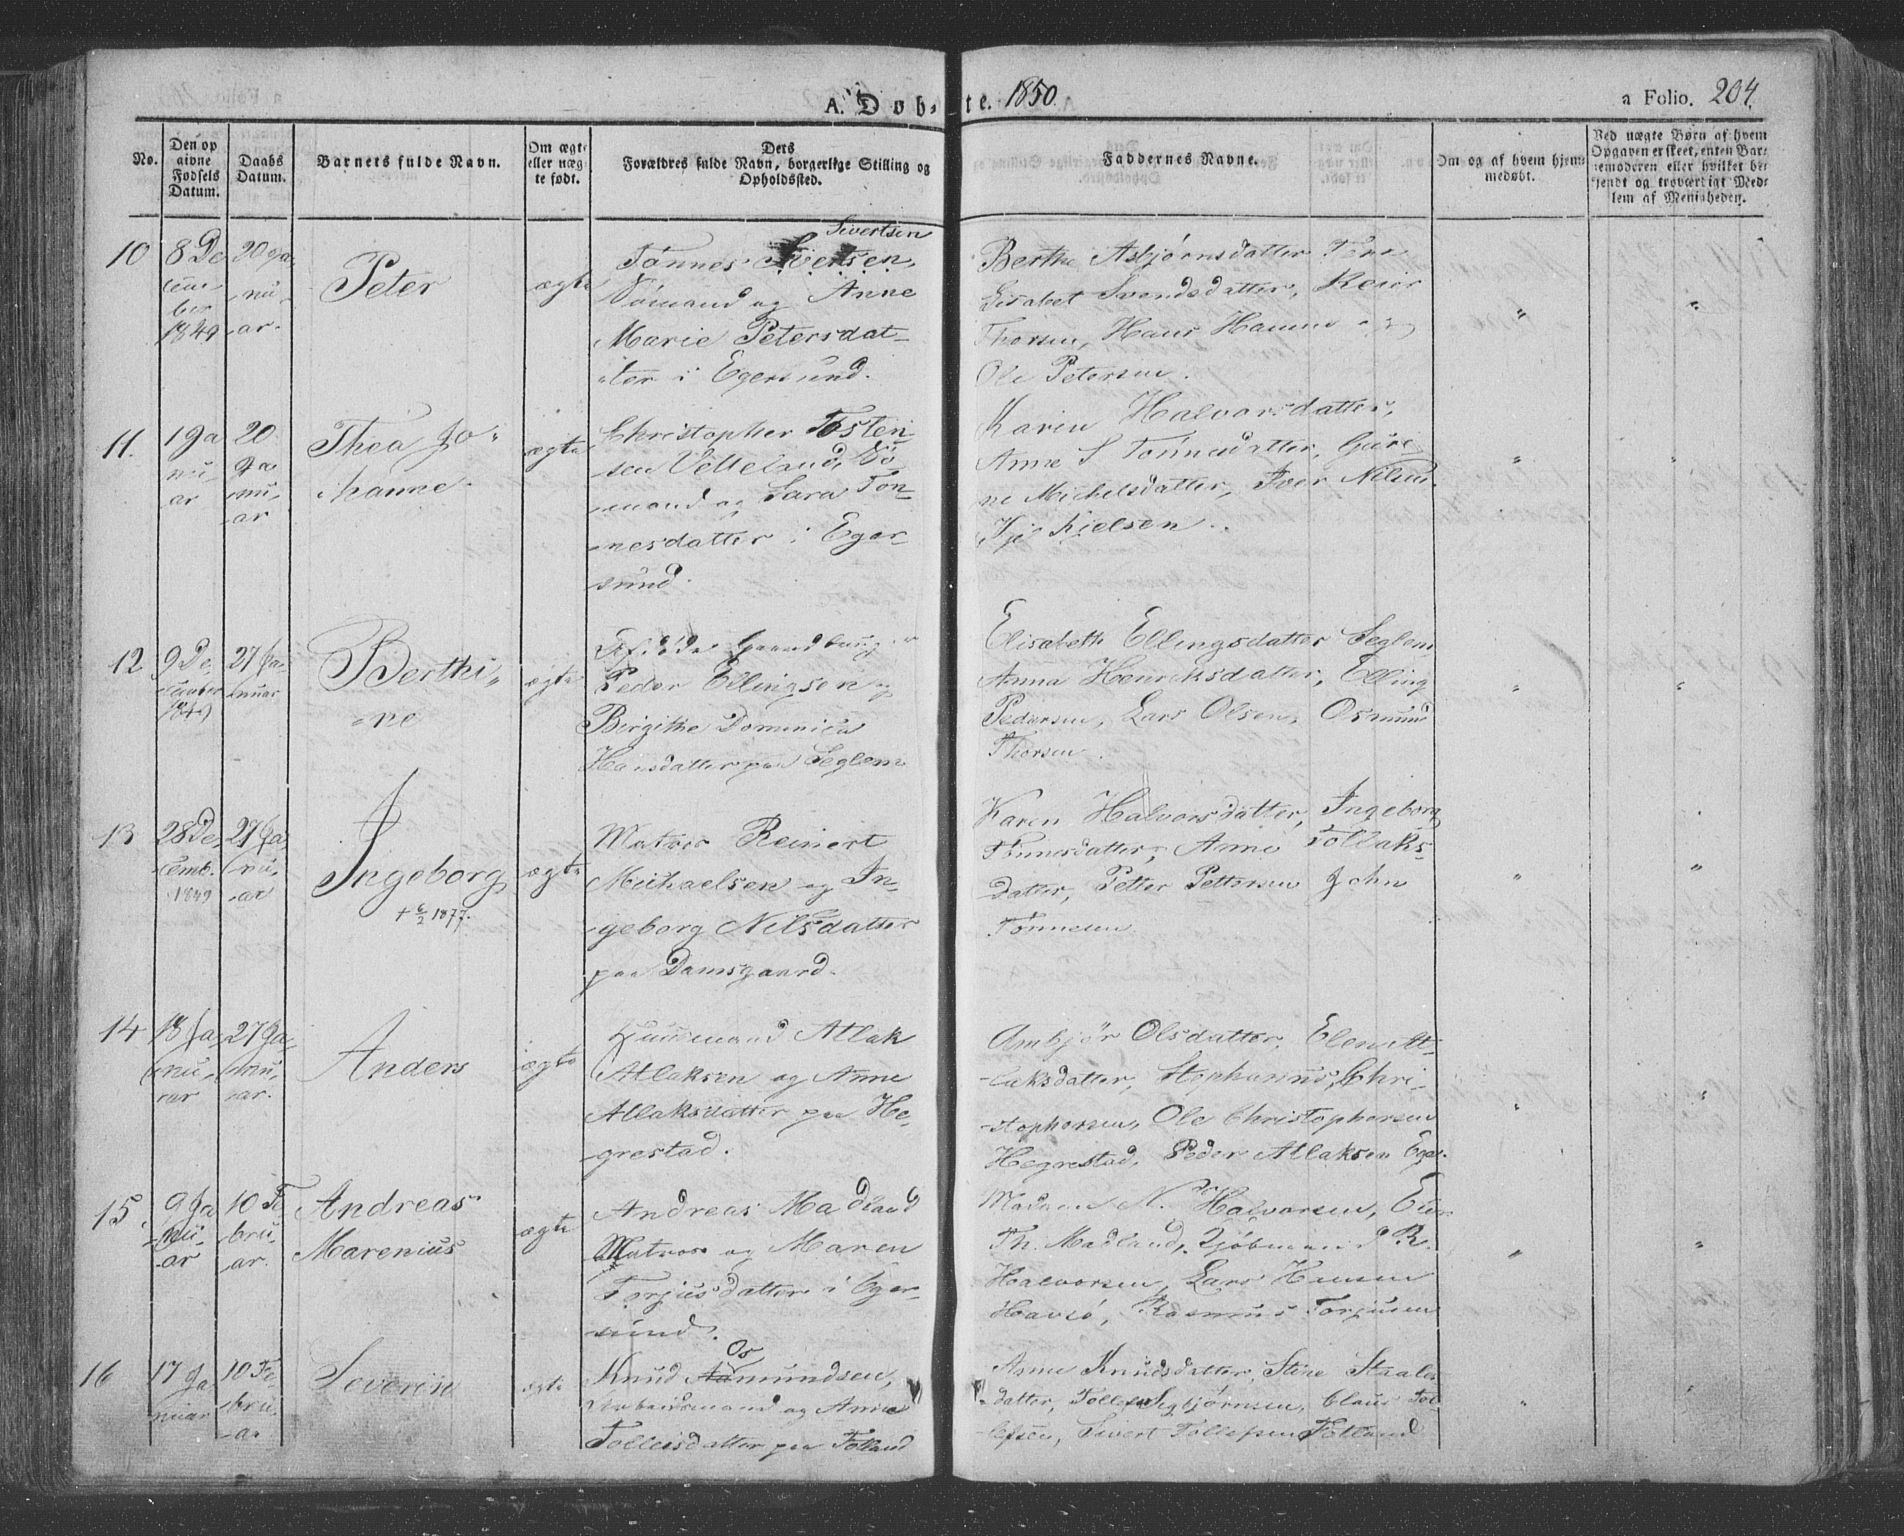 A. Døb-
te. 1850.
a Folio. 204.
No.
Den op
givne
Fødsels
Datum.
Daabs
Datum.
Barnets fulde Navn.
Om ægte
eller uæg-
te født.
Dets
Forældres fulde Navn, borgerlige Stilling og
Opholdssted.
Faddernes Navne.
Om og af hvem hjem-
medøbt.
Ved uægte Børn af hvem
Opgaven er skeet, enten Bar-
nemoderen eller hvilket be-
kjendt og troværdigt Med-
lem af Menigheden.
10
8 De
cem-
ber
1849
20 Ja
nu-
ar.
Peter
ægte
Sivertsen
Tønnes Sivertsen,
Sømand og Anne
Marie Petersdat-
ter i Egersund.
Berthe Asbjørnsdatter
Lisabet Svendsdatter, Reier
Thorsen, Hans
Ole Petersen.
"
"
11.
1 Ja
nu-
ar
20
Ja
nu-
ar
Thea Jo-
hanne.
ægte
Christopher Tosten-
sen Velleland, Sø
mand og Sara Tøn-
nesdatter i Eger-
sund.
Karen Halvorsdatter,
Anne S Tønnesdatter, Guri-
ne Michelsdatter, Iver Nilsen
Kielsen.
"
"
12
9 De,
cember
1849
27 Ja-
nuar
Berthi-
ne
ægte
Peder Ellingsen og
Birgithe Dominica
Hansdatter paa Seglem
Elisabeth Ellingsdatter Seglem
Anna Henriksdatter, Elling
Pedersen, Lars Olsen, Osmund
Thorsen.
"
"
13
28 De,
cemb.
1849
27 Ja
nu-
ar
Ingeborg
+ 6/2 1877.
ægte
Matros Reinert
Michaelsen og In-
geborg Nilsdatter
paa Damsgaard.
Karen Halvorsdatter, Ingeborg
Tønnesdatter, Anne Tollaks-
datter, Petter Pettersen John
Tønnesen
"
"
14
18 Ja,
nu-
ar
27 Ja,
nu-
ar.
Anders
ægte
Huusmand Atlak
Atlaksen og Anne
Atlaksdatter paa He-
grestad.
Ambjør Olsdatter, Elen At-
laksdatter, Stephanus Chri-
stophersen, Ole Christophersen
Hegrestad, Peder Atlaksen Ege
"
"
15.
9 Ja
nu-
ar
10 Fe
bru-
ar.
Andreas
Marenius
ægte
Andreas Madland
Matros og Maren
Torjusdatter i Eger-
sund.
Madam N. Halvorsen,
Th. Madland, Kjøbmand R.
Halvorsen, Lars Hansen
Havsø, Rasmus Torjusen
"
"
16
17 Ja
nuar
10 Fe-
bru-
ar
Severin
ægte
Os
Knud Aamundsen,
Arbeidsmand og Anne
Tollefsdatter paa Fotland
Anne Knudsdatter, Stine Staale
datter, Tollef Sigbjørnsen, Claus Tol-
lefsen, Sivert Tollefsen Fotland
"